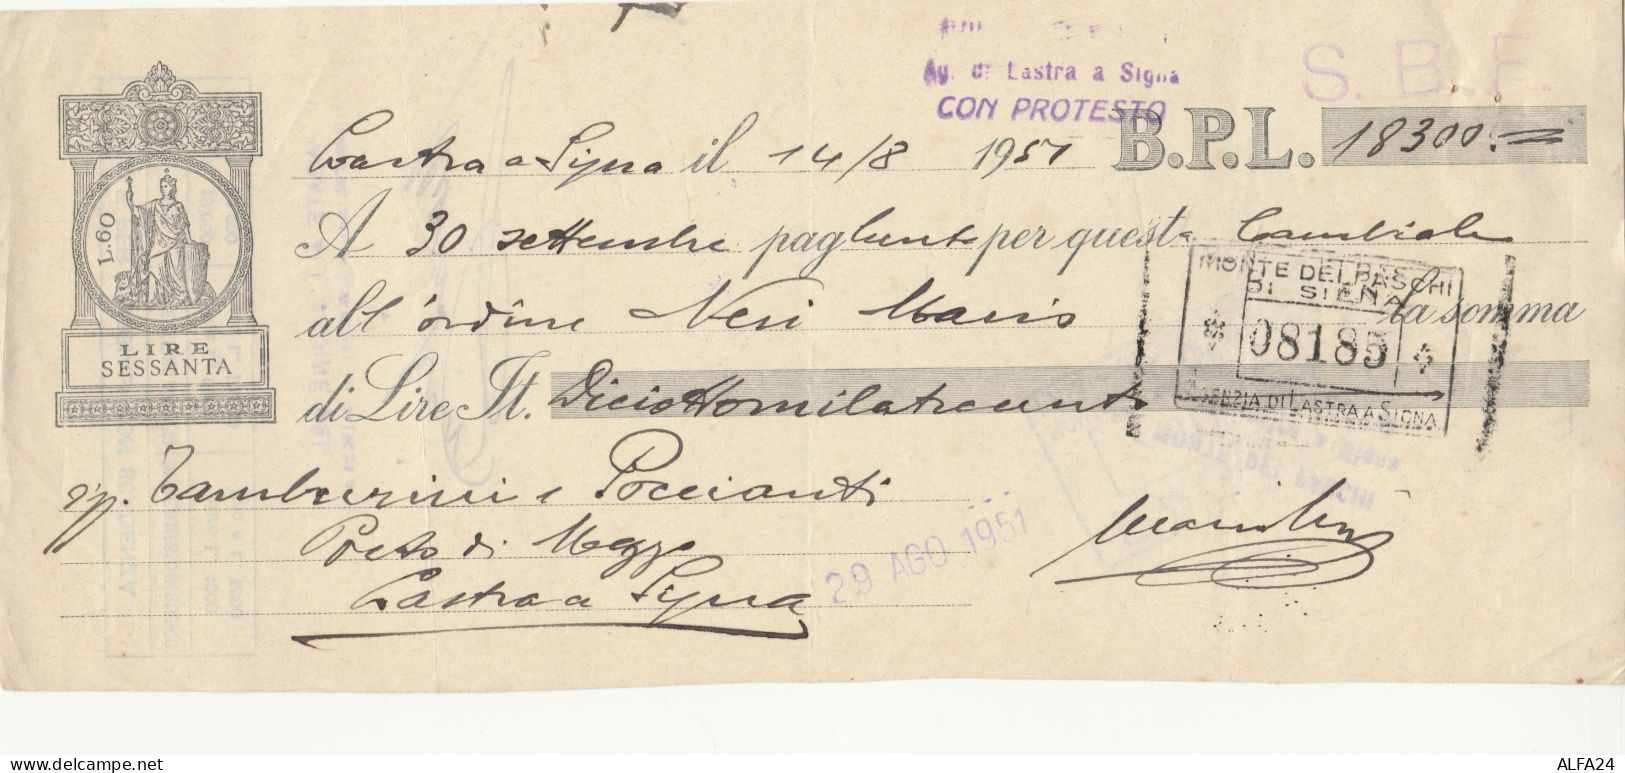 Ag. di Lastra a Signa
CON PROTESTO
S. B. F.
Lastra a Signa il 14/8 1951 B.P.L. 18300.=
L.60
LIRE
SESSANTA
A 30 settembre pagherete per questa Cambiale
all'ordine Neri Mario la somma
di Lire It. Diciottomilatrecento
MONTE DEI PASCHI
DI SIENA
08185
AGENZIA DI LASTRA A SIGNA
Tamburini e Poccianti
Porto di Mezzo
Lastra a Signa
29 AGO 1951
delcampe.net
ALFA24